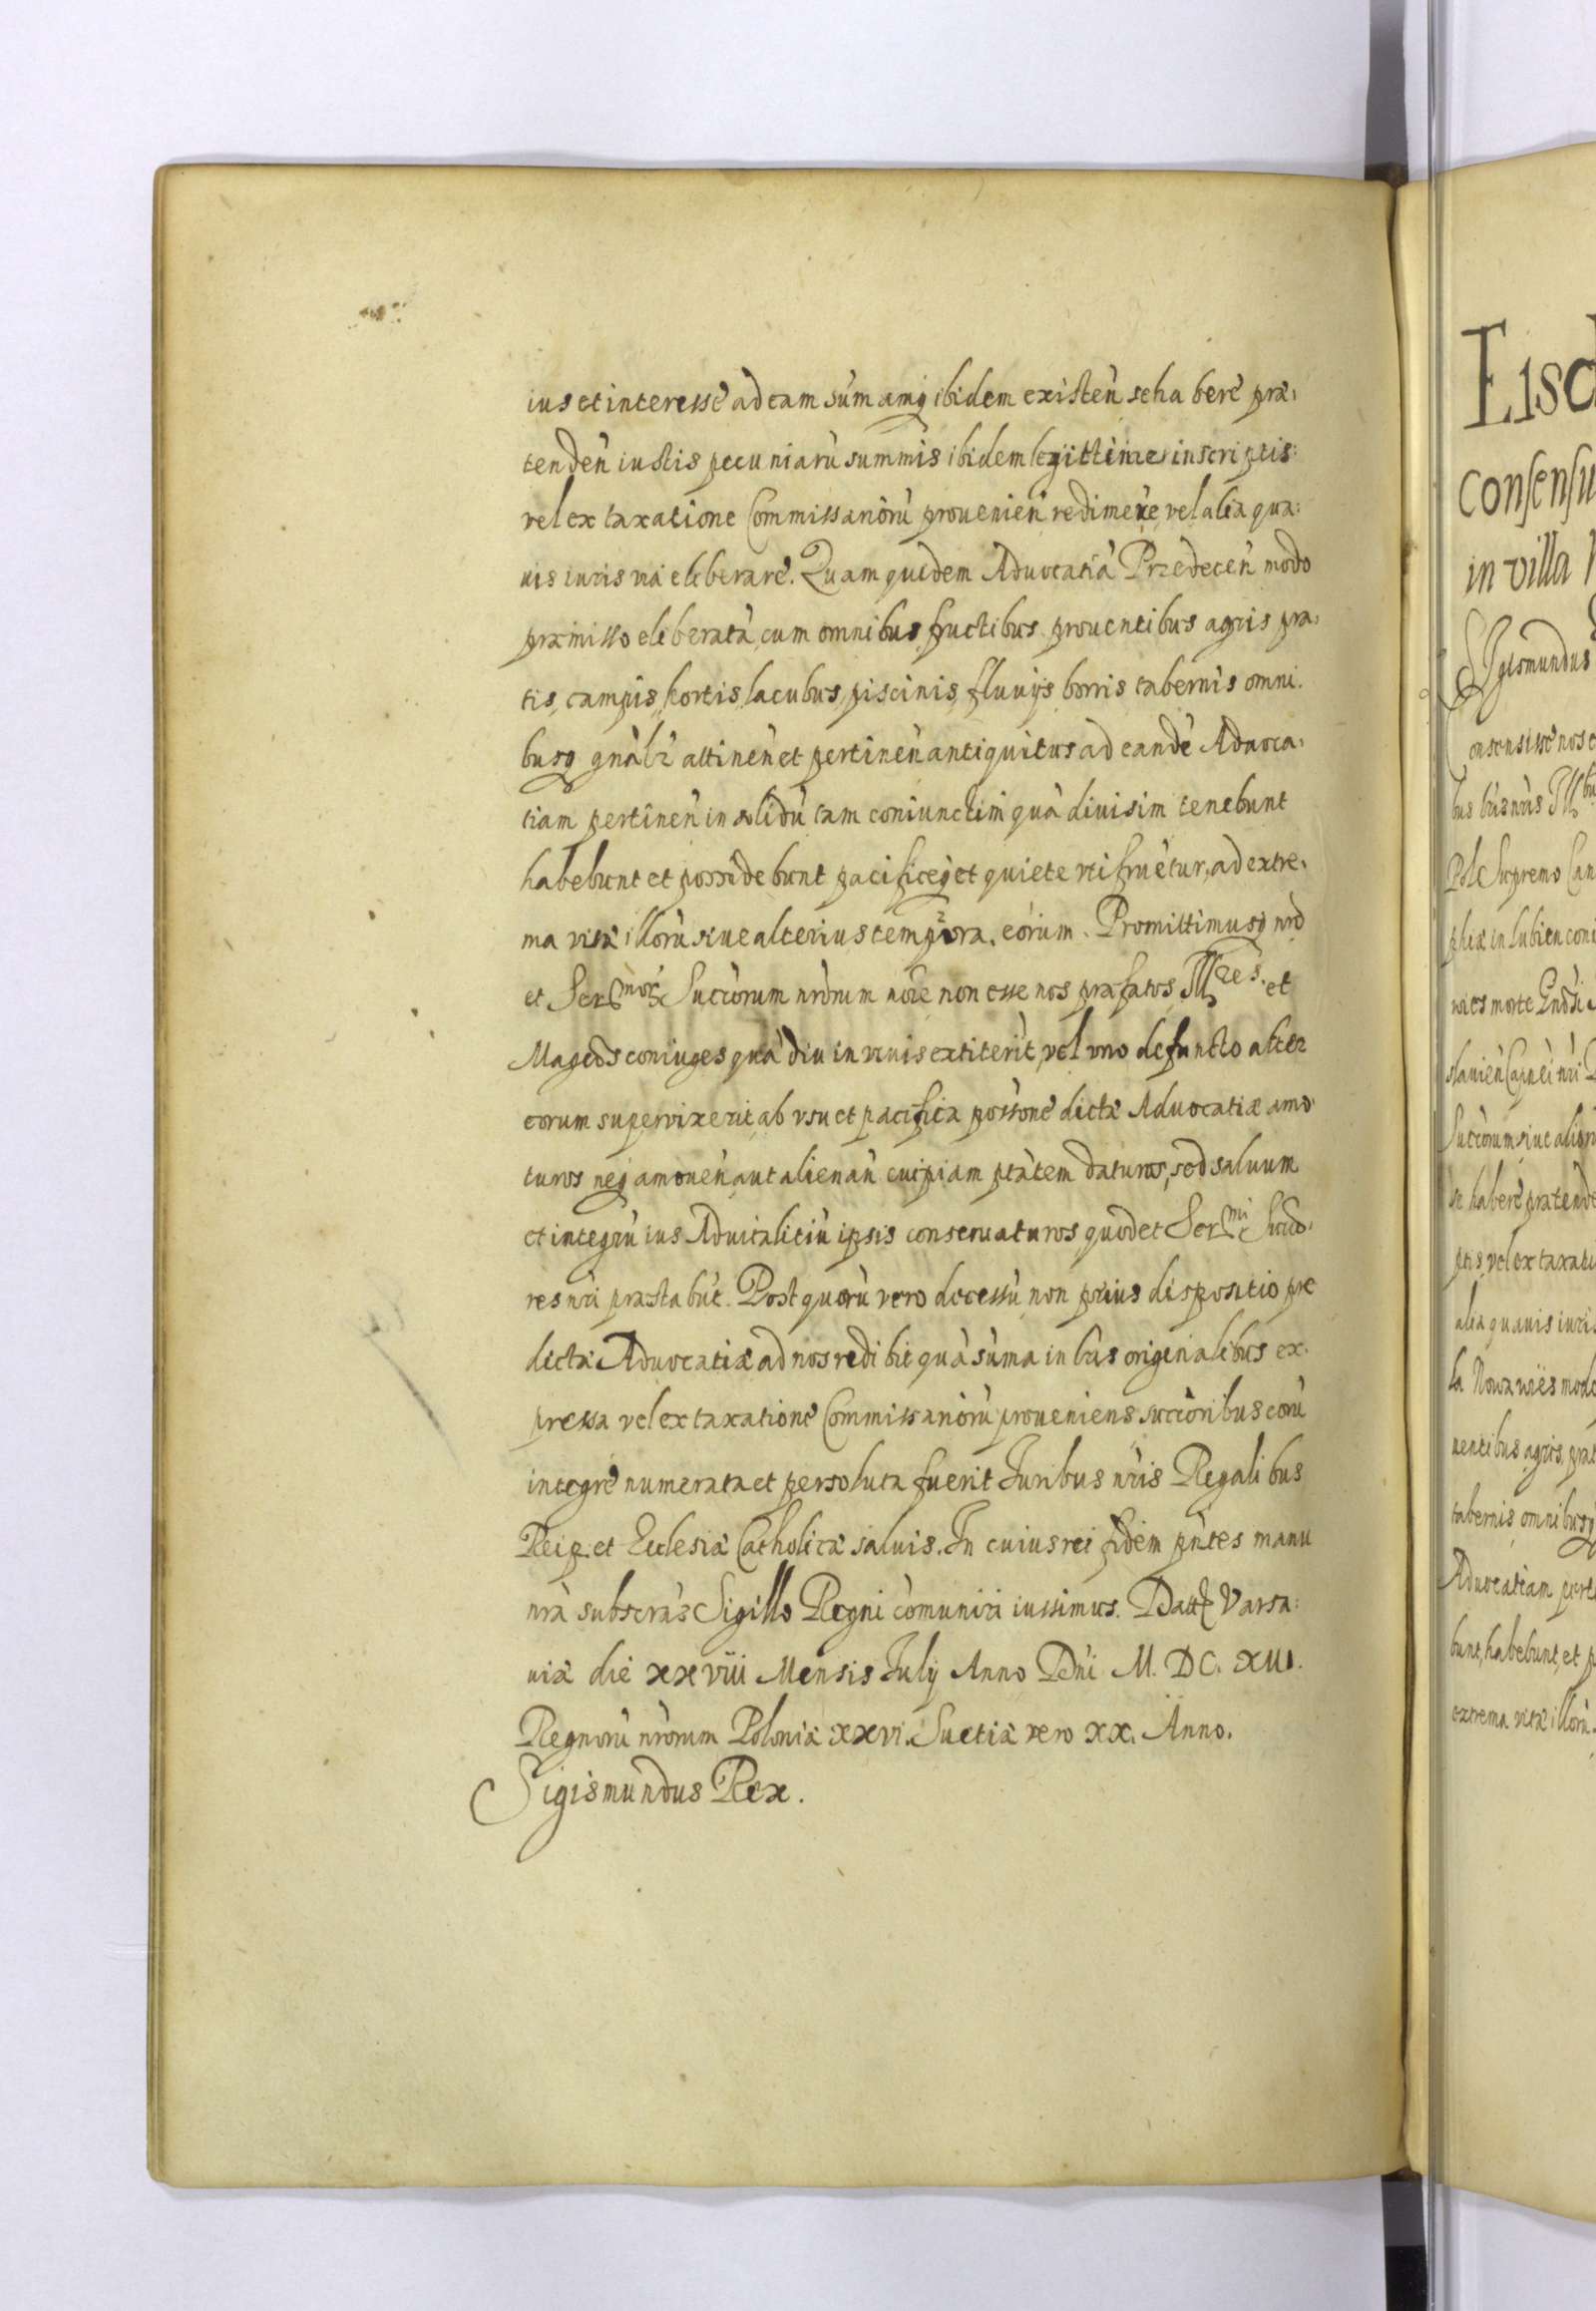 ius et interesse ad eam sum̀amq ibidem existeǹ se habere præ:
tendeǹ iustis pecuniarù summis ibidem legittime inscriptis:
vel ex taxatione Commissariorù prouenieǹ redimere, vel alia qua:
uis iuris via eliberare. Quam quidem Aduocatià Przedeceǹ modo
præmisso eliberatà, cum omnibus fructibus prouentibus agris pra:
tis, campis, hortis, lacubus, piscinis, fluvijs borris tabernis omni.
busq gnàlr attineǹ et pertineǹ antiquitus ad eandè Aduoca:
tiam pertineǹ in solidù tam coniunctim quà diuisim tenebunt
habebunt et possidebunt pacificeq et quiete vti fruètur, ad extre:
ma vitæ illorù siue alterius tempora eorum. Promittimusq nrò
et Serᵐᵒʳ Succòrum nròrum nòie non esse nos præfatos Illʳᵉˢ. et
Magcos coniuges quà diu in viuis extiterìt, vel vno defuncto alter
eorum supervixerit ab vsu et pacifica possonè dictæ Aduocatiæ amo
turos neq amoueǹ aut alienaǹ cuipiam ptàtem daturos, sed saluum
et integrù ius Aduitalitiù ipsis conseruaturos quod et Serᵐⁱ Succo:
res nri præstabùt. Post quorù vero decessù non prius dispositio præ
dictæ Aduocatiæ ad nos redibit quà sùma in lrìs originalibus ex:
pressa vel ex taxatione Commissariorù proueniens succòribus eorù
integrè numerata et persoluta fuerit Iuribus nris Regalibus
Reip. et Ecclesiæ Catholicæ saluis. In cuius rei fidem pǹtes manu
nrà subscràs Sigillo Regni còmuniri iussimus. Datt Varsa:
uiæ die xxviii Mensis Iulij Anno Dni M. DC. XIII.
Regnorù nròrum Poloniæ xxvi. Suetiæ vero xx. Anno.
Sigismundus Rex.
Consensu
in villa
Sigismundus
onsensisse nos
Pol Supremo Can
phiæ in Lubien
wies morte
Succòrum siue
se habere prætende
ptis, vel ex taxati
alia quauis iuris
la Nowawies modo
uentibus agris, prat
tabernis omnibusq
Aduocatiam perti
bunt, habebunt, et p
extrema vitæ illorù